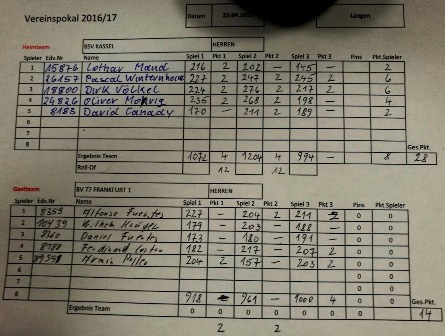 Vereinspokal 2016/17 Datum 23.04. Langen
Heimteam BSV KASSEL HERREN
Spieler Edv.Nr Name Spiel 1 Pkt 1 Spiel 2 Pkt 2 Spiel 3 Pkt 3 Pins Pkt.Spieler
1 15876 Lothar Mand 216 2 202 — 145 — 2
2 26157 Pascal Winternheimer 227 2 247 2 245 2 6
3 18800 Dirk Völkel 224 2 276 2 217 2 6
4 24826 Oliver 235 2 268 2 198 — 4
5 8183 David Canady 170 — 211 2 189 — 2
6
7
8 Ges.Pkt.
Ergebnis Team 1072 4 1204 4 994 — 8 28
Roll-Off 12 12
Gastteam BV 77 FRANKFURT 1 HERREN
Spieler Edv.Nr Name Spiel 1 Pkt 1 Spiel 2 Pkt 2 Spiel 3 Pkt 3 Pins Pkt.Spieler
1 8355 Alfonso Fuentes 227 — 204 2 211 2 0 0
2 10439 Wilhelm Krüger 179 — 203 — 188 — 0 0
3 8360 Daniel Fuentes 173 — 180 — 191 — 0 0
4 8788 Ferdinand 182 — 217 — 207 2 0 0
5 Armin 204 2 157 — 203 2 0 0
6 0 0
7 0 0
8 978 961 — 1000 4 0 0 Ges.Pkt.
Ergebnis Team 0 0 0 0 0 0 0 0 14
2 2